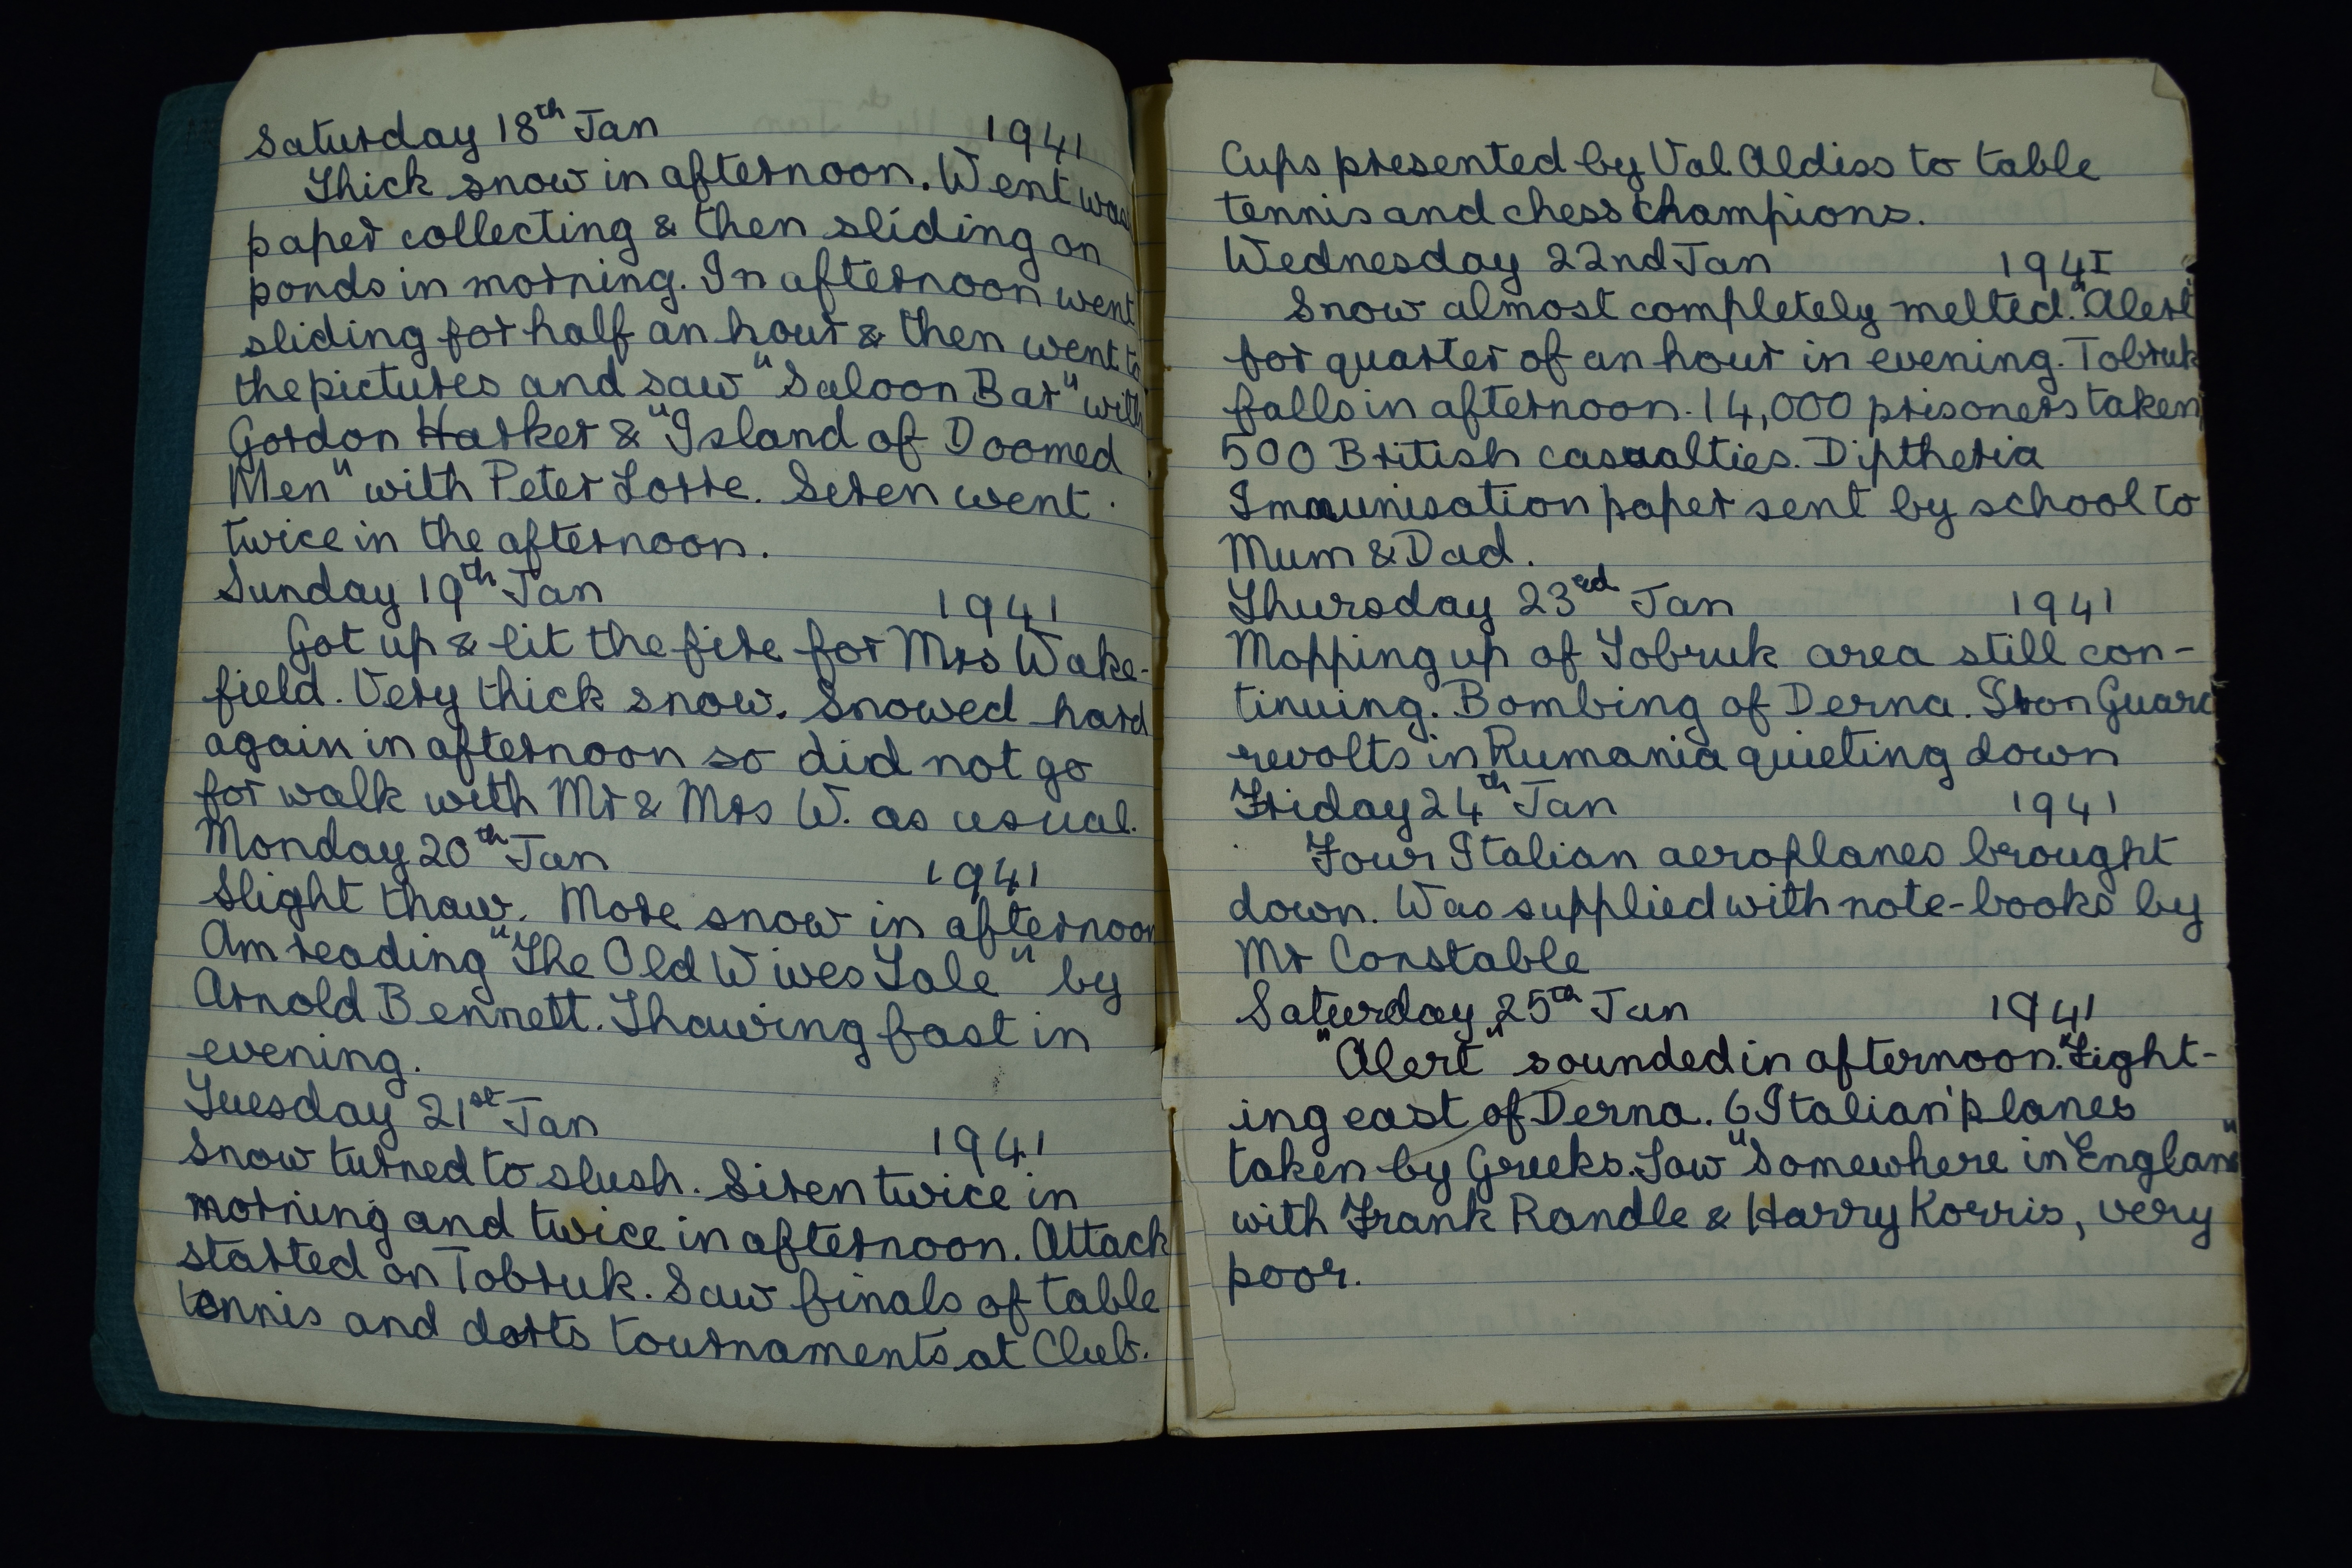 Saturday 18th Jan 1941
Thick snow in afternoon. Went was
paper collecting & then sliding on
ponds in morning. In afternoon went
sliding for half an hour & then went to
the pictures and saw "Saloon Bar" with
Gordon Harker & "Island of Doomed
Men" with Peter Lorre. Seren went
twice in the afternoon.
Sunday 19th Jan 1941
Got up & lit the fire for Mrs Wake-
field. Very thick snow. Snowed hard
again in afternoon so did not go
for walk with Mr & Mrs W. as usual.
Monday 20th Jan 1941
Slight thaw. More snow in afternoon
Am reading "The Old Wives Tale" by
Arnold Bennett. Thawing fast in
evening.
Tuesday 21st Jan 1941
Snow turned to slush. Siren twice in
morning and twice in afternoon. Attack
started on Tobruk. Saw finals of table
tennis and darts tournaments at Club.
Cups presented by Val Aldiss to table
tennis and chess champions.
Wednesday 22nd Jan 1941
Snow almost completely melted. "Alert"
for quarter of an hour in evening. Tobruk
falls in afternoon. 14,000 prisoners taken,
500 British casualties. Diptheria
Immunisation paper sent by school to
Mum & Dad.
Thursday 23rd Jan 1941
Mopping up of Tobruk area still con-
tinuing. Bombing of Derna. Iron Guard
revolts in Rumania quieting down
Friday 24th Jan 1941
Four Italian aeroplanes brought
down. Was supplied with note-books by
Mr Constable
Saturday 25th Jan 1941
"Alert" sounded in afternoon. Fight-
ing east of Derna. 6 Italian planes
taken by Greeks. Saw "Somewhere in England"
with Frank Randle & Harry Korris, very
poor.